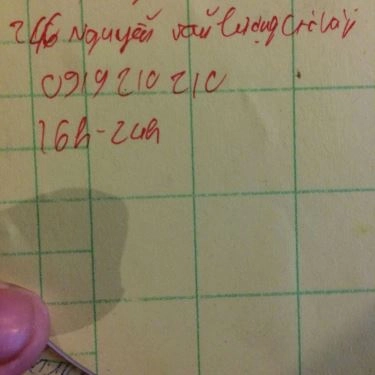 246 Nguyễn văn lượng
0919 210 210
16h - 24h